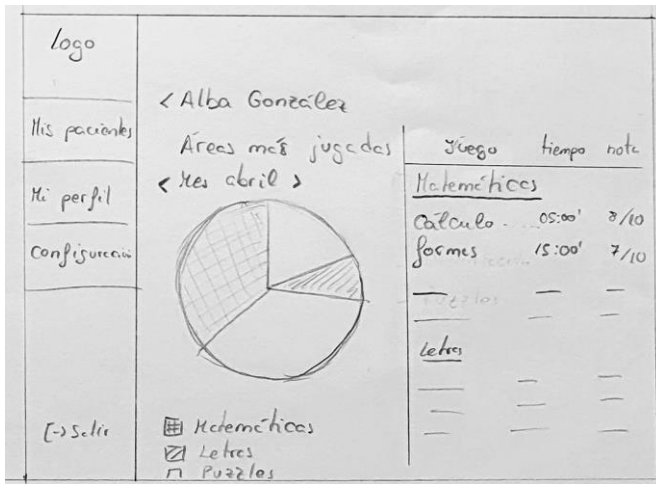 Logo
Mis pacientes
Mi perfil
Configuración
[-> Salir
< Alba González
Áreas más jugadas
< Mes abril >
Matemáticas
Letras
Puzzles
Juego tiempo nota
Matemáticas
Cálculo 05:00' 8/10
formas 15:00' 7/10
Letras